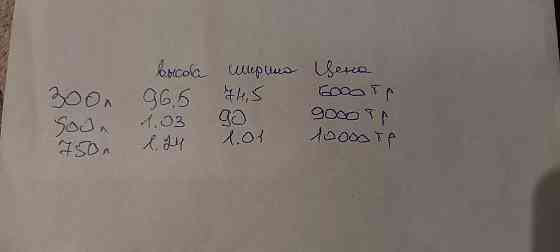 высота ширина Цена
300л 96,5 74,5 6000 Тр
500л 1.03 90 9000 Тр
750л 1.24 1.01 10000 Тр